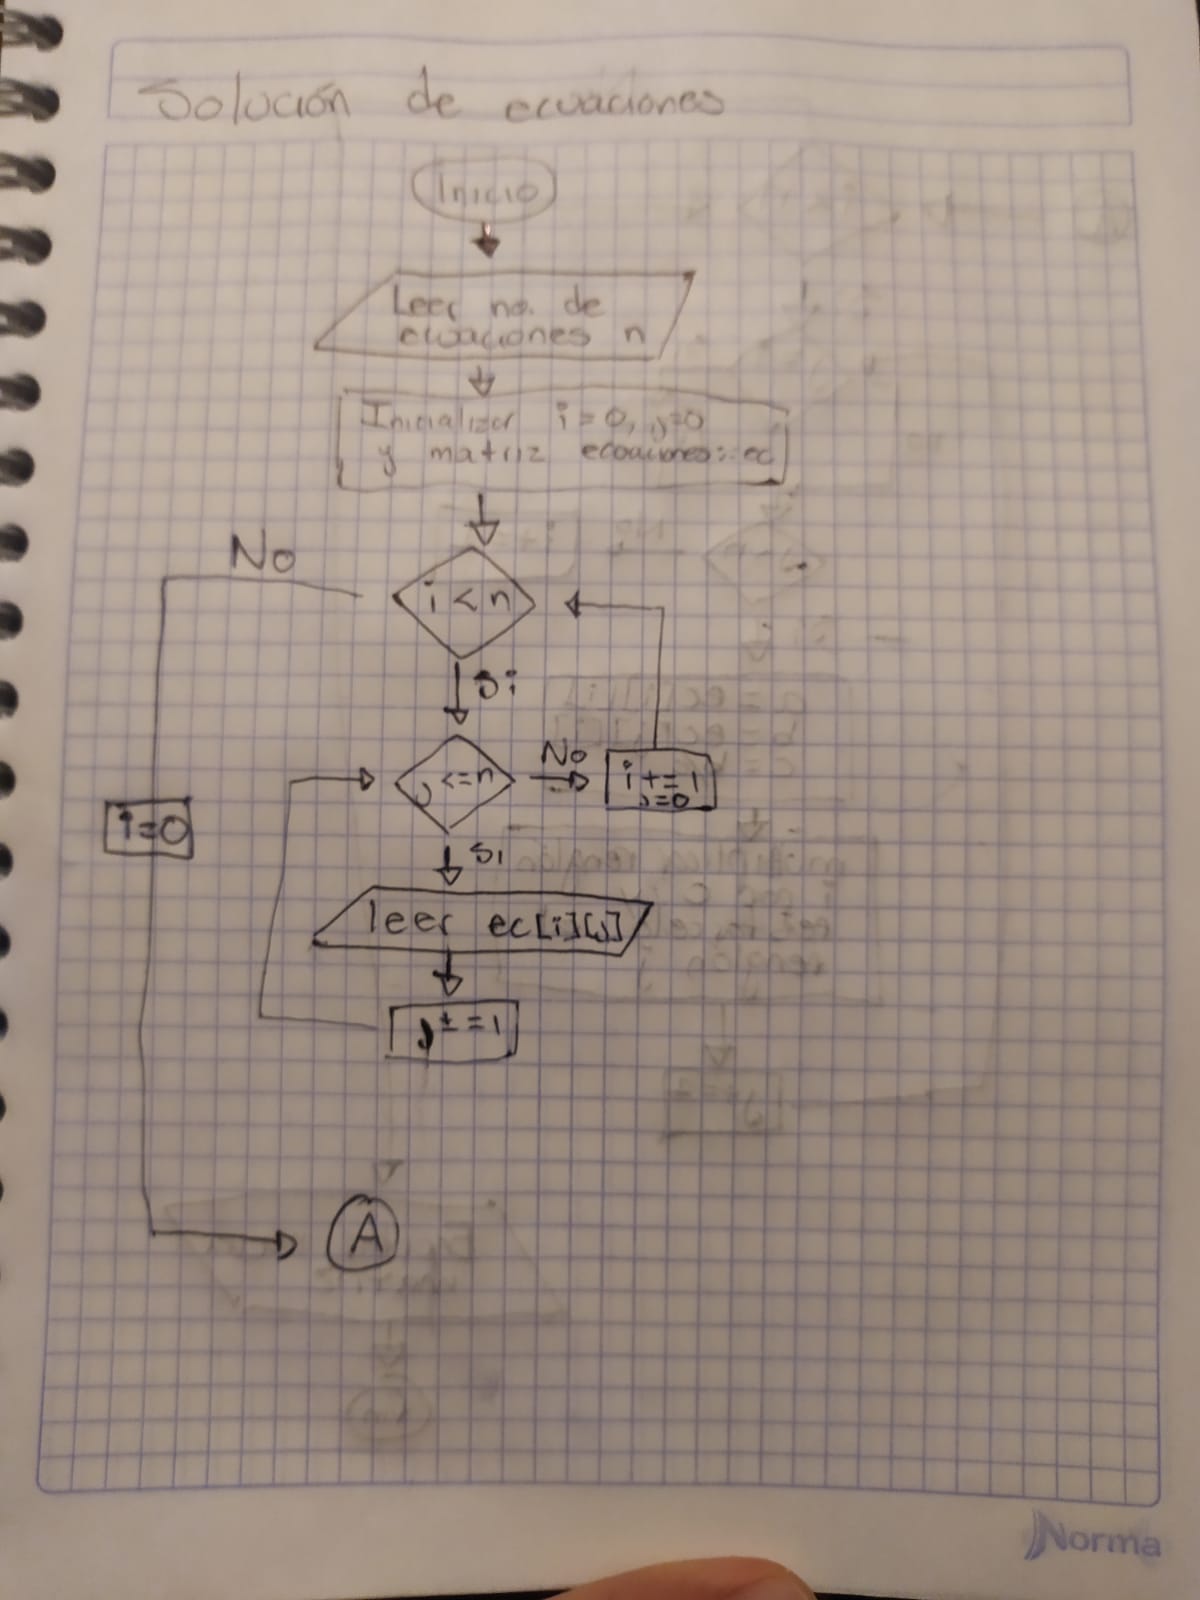 Solución de ecuaciones
Inicio
Leer no. de
ecuaciones n
Inicializar i=0, j=0
y matriz ecuaciones: ec
No
i < n
Si
j <= n
No
i += 1
j=0
i=0
Si
leer ec[i][j]
j += 1
A
Norma